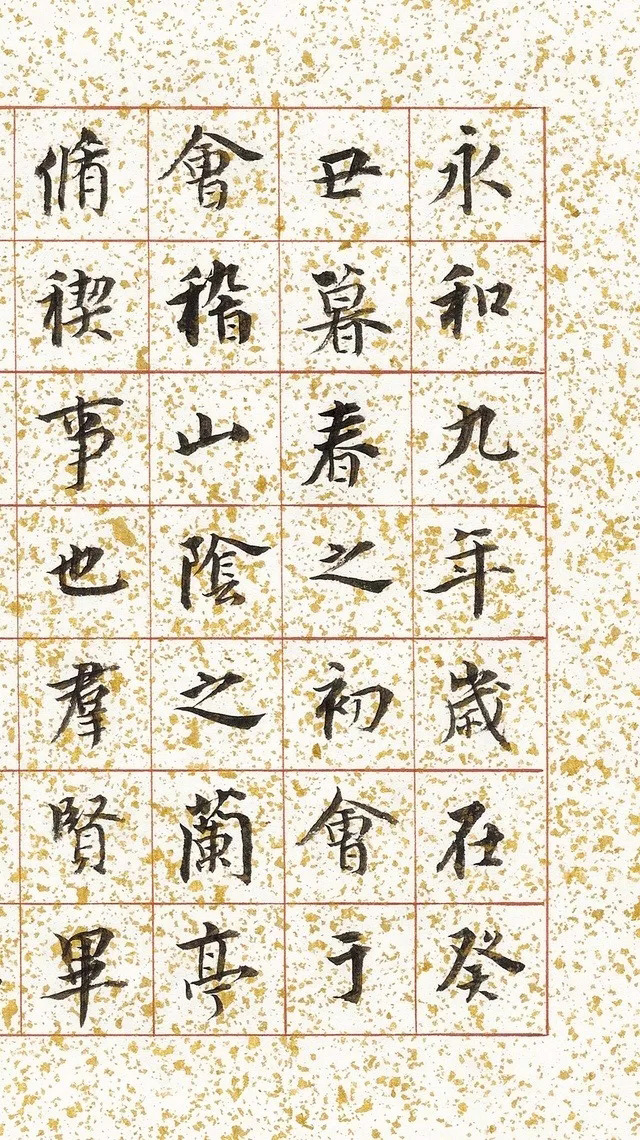 永和九年歲在癸
丑暮春之初會于
會稽山陰之蘭亭
脩禊事也羣賢畢